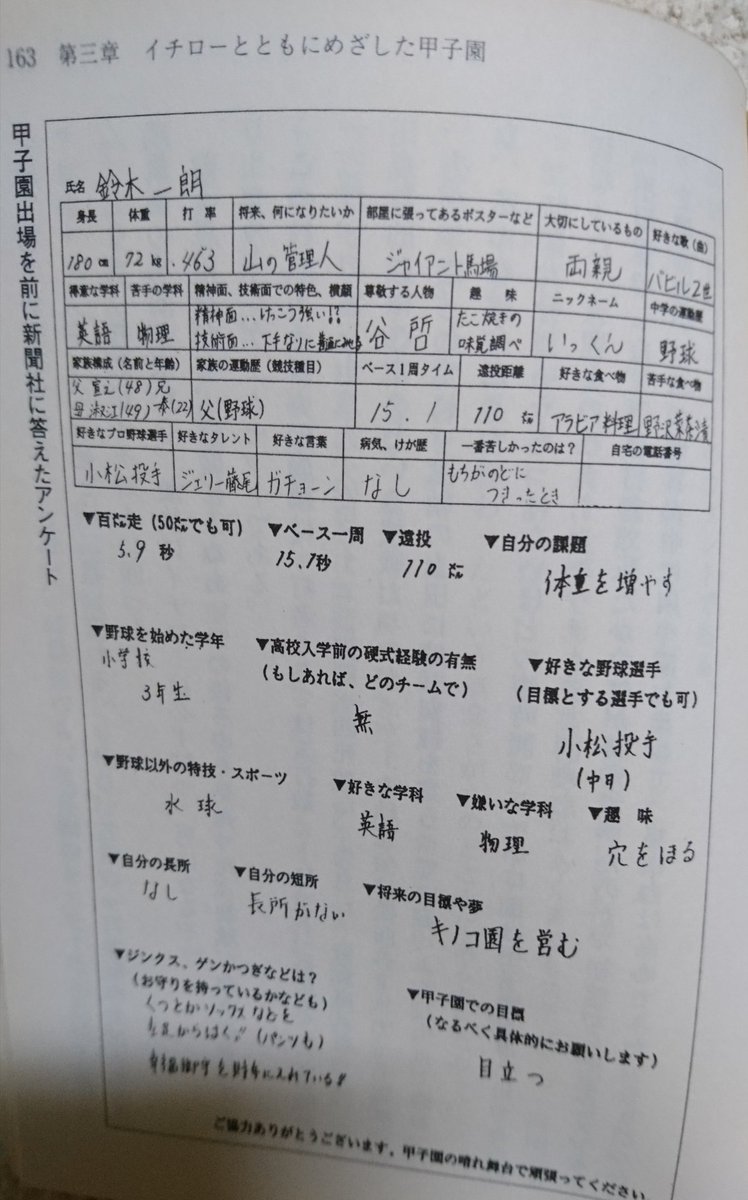 163 第三章 イチローとともにめざした甲子園
甲子園出場を前に新聞社に答えたアンケート
氏名 鈴木一朗
身長 体重 打率 将来、何になりたいか 部屋に張ってあるポスターなど 大切にしているもの 好きな歌(曲)
180cm 72kg .463 山の管理人 ジャイアント馬場 両親 バビル2世
得意な学科 苦手の学科 精神面、技術面での特色、横顔 尊敬する人物 趣味 ニックネーム 中学の運動歴
英語 物理 精神面…けっこう強い!? 谷 哲 たこ焼きの いっくん 野球
技術面…下手なりに 味覚調べ
家族構成(名前と年齢) 家族の運動歴(競技種目) ベース1周タイム 遠投距離 好きな食べ物 苦手な食べ物
父 宣之(48) 兄 父(野球) 15.1 110㍍ アラビア料理 野沢菜茶漬
母 淑江(49) 一泰(22)
好きなプロ野球選手 好きなタレント 好きな言葉 病気、けが歴 一番苦しかったのは? 自宅の電話番号
小松投手 ジェリー藤尾 ガチョーン なし もちがのどに
つまったとき
▼百㍍走(50㍍でも可) ▼ベース一周 ▼遠投 ▼自分の課題
5.9秒 15.1秒 110㍍ 体重を増やす
▼野球を始めた学年 ▼高校入学前の硬式経験の有無 ▼好きな野球選手
小学校 (もしあれば、どのチームで) (目標とする選手でも可)
3年生 無 小松投手
(中日)
▼野球以外の特技・スポーツ ▼好きな学科 ▼嫌いな学科 ▼趣味
水球 英語 物理 穴をほる
▼自分の長所 ▼自分の短所 ▼将来の目標や夢
なし 長所がない キノコ園を営む
▼ジンクス、ゲンかつぎなどは? ▼甲子園での目標
(お守りを持っているかなども) (なるべく具体的にお願いします)
くつとかソックスなどを 目立つ
左足からはく!!(パンツも)
を財布に入れている!!
ご協力ありがとうございます。甲子園の晴れ舞台で頑張ってください